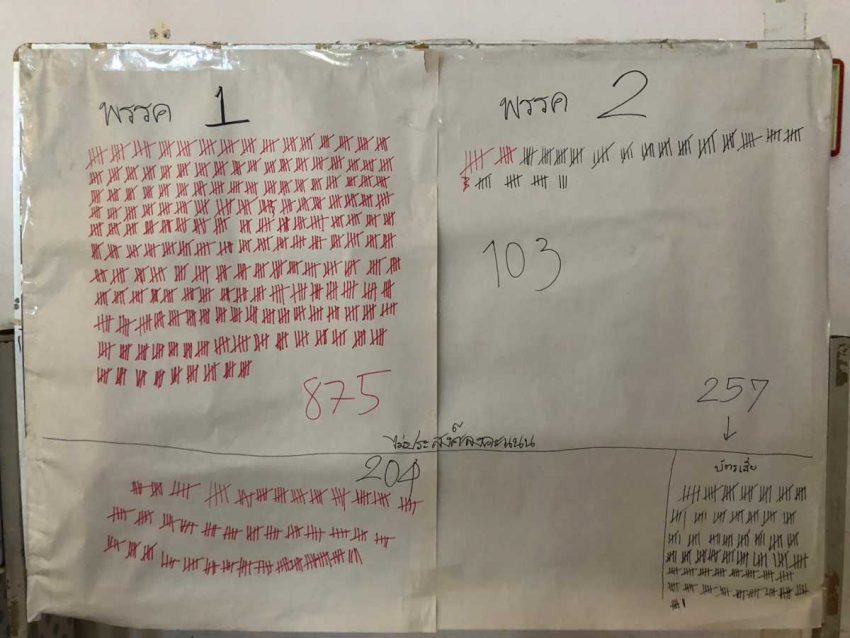 พรรค 1
875
พรรค 2
103
257
ไม่ประสงค์ลงคะแนน
204
บัตรเสีย